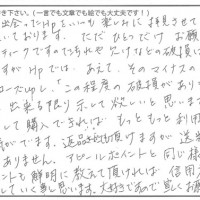 き下さい。(一言でも文章でも絵でも大丈夫です！)
出会ったHpをいつも楽しみに拝見させて
いております。ただひとつだけお願
チークですのでちれや欠けなどの破損に
ですがHpでは、あえて、そのマイナスの
ーズUPし、「この程度の破損があり
、出来る限り示して欲しいと思いま
して購入できれば、もっともっと利用
がでます。返品も頂けますが送
ありません。アピールポイントと同じ様
ントも鮮明に教えて頂ければ信用
していく事と思います。大好きですので宜しくお願